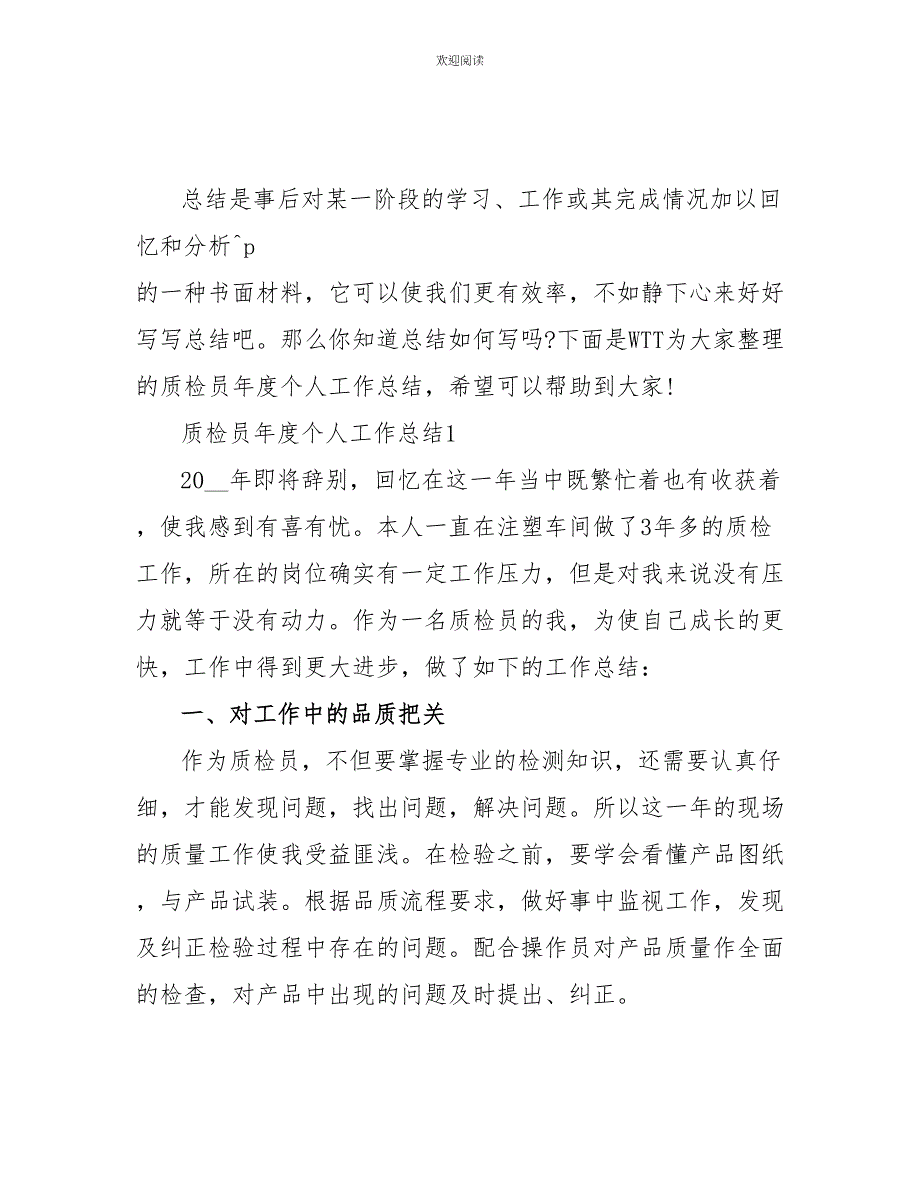 欢迎阅读
总结是事后对某一阶段的学习、工作或其完成情况加以回
忆和分析^p
的一种书面材料，它可以使我们更有效率，不如静下心来好好
写写总结吧。那么你知道总结如何写吗?下面是WTT为大家整理
的质检员年度个人工作总结，希望可以帮助到大家!
质检员年度个人工作总结1
20__年即将辞别，回忆在这一年当中既繁忙着也有收获着
，使我感到有喜有忧。本人一直在注塑车间做了3年多的质检
工作，所在的岗位确实有一定工作压力，但是对我来说没有压
力就等于没有动力。作为一名质检员的我，为使自己成长的更
快，工作中得到更大进步，做了如下的工作总结：
一、对工作中的品质把关
作为质检员，不但要掌握专业的检测知识，还需要认真仔
细，才能发现问题，找出问题，解决问题。所以这一年的现场
的质量工作使我受益匪浅。在检验之前，要学会看懂产品图纸
，与产品试装。根据品质流程要求，做好事中监视工作，发现
及纠正检验过程中存在的问题。配合操作员对产品质量作全面
的检查，对产品中出现的问题及时提出、纠正。